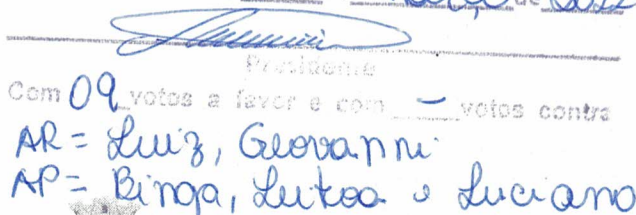 de
Presidente
Com 09 votos a favor e com - votos contra
AR = Luiz, Geovanni
AP = Binga, Lukoa e Luciano